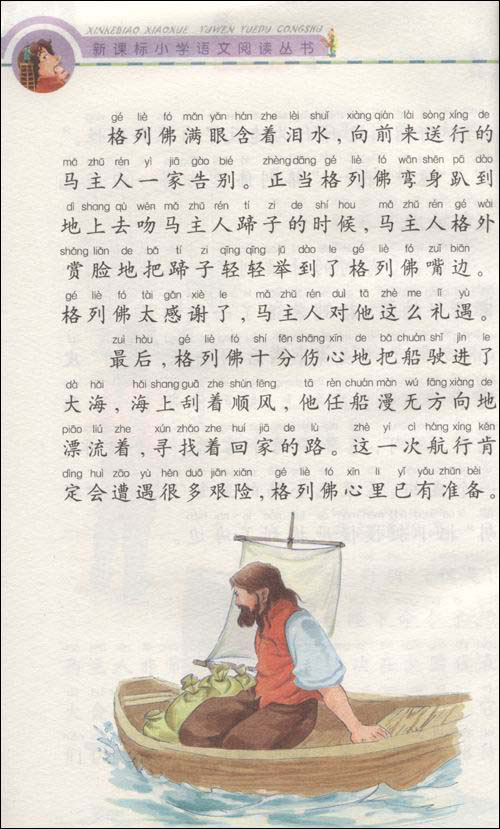 XINKEBIAO XIAOXUE YUWEN YUEDU CONGSHU
新课标小学语文阅读丛书
gé liè fó mǎn yǎn hán zhe lèi shuǐ xiàng qián lái sòng xíng de
格列佛满眼含着泪水，向前来送行的
mǎ zhǔ rén yì jiā gào bié zhèng dāng gé liè fó wān shēn pā dào
马主人一家告别。正当格列佛弯身趴到
dì shang qù wěn mǎ zhǔ rén tí zi de shí hou mǎ zhǔ rén gé wài
地上去吻马主人蹄子的时候，马主人格外
shǎng liǎn de bǎ tí zi qīng qīng jǔ dào le gé liè fó zuǐ biān
赏脸地把蹄子轻轻举到了格列佛嘴边。
gé liè fó tài gǎn xiè le mǎ zhǔ rén duì tā zhè me lǐ yù
格列佛太感谢了，马主人对他这么礼遇。
zuì hòu gé liè fó shí fēn shāng xīn de bǎ chuán shǐ jìn le
最后，格列佛十分伤心地把船驶进了
dà hǎi hǎi shang guā zhe shùn fēng tā rèn chuán màn wú fāng xiàng de
大海，海上刮着顺风，他任船漫无方向地
piāo liú zhe xún zhǎo zhe huí jiā de lù zhè yí cì háng xíng kěn
漂流着，寻找着回家的路。这一次航行肯
dìng huì zāo yù hěn duō jiān xiǎn gé liè fó xīn li yǐ yǒu zhǔn bèi
定会遭遇很多艰险，格列佛心里已有准备。